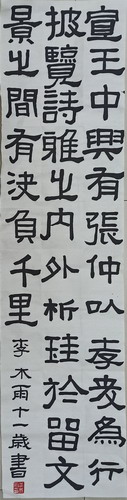 宣王中興有張仲以孝友為行
披覽詩雅之內外析珪於留文
景之間有決負千里
李木雨十一歲書